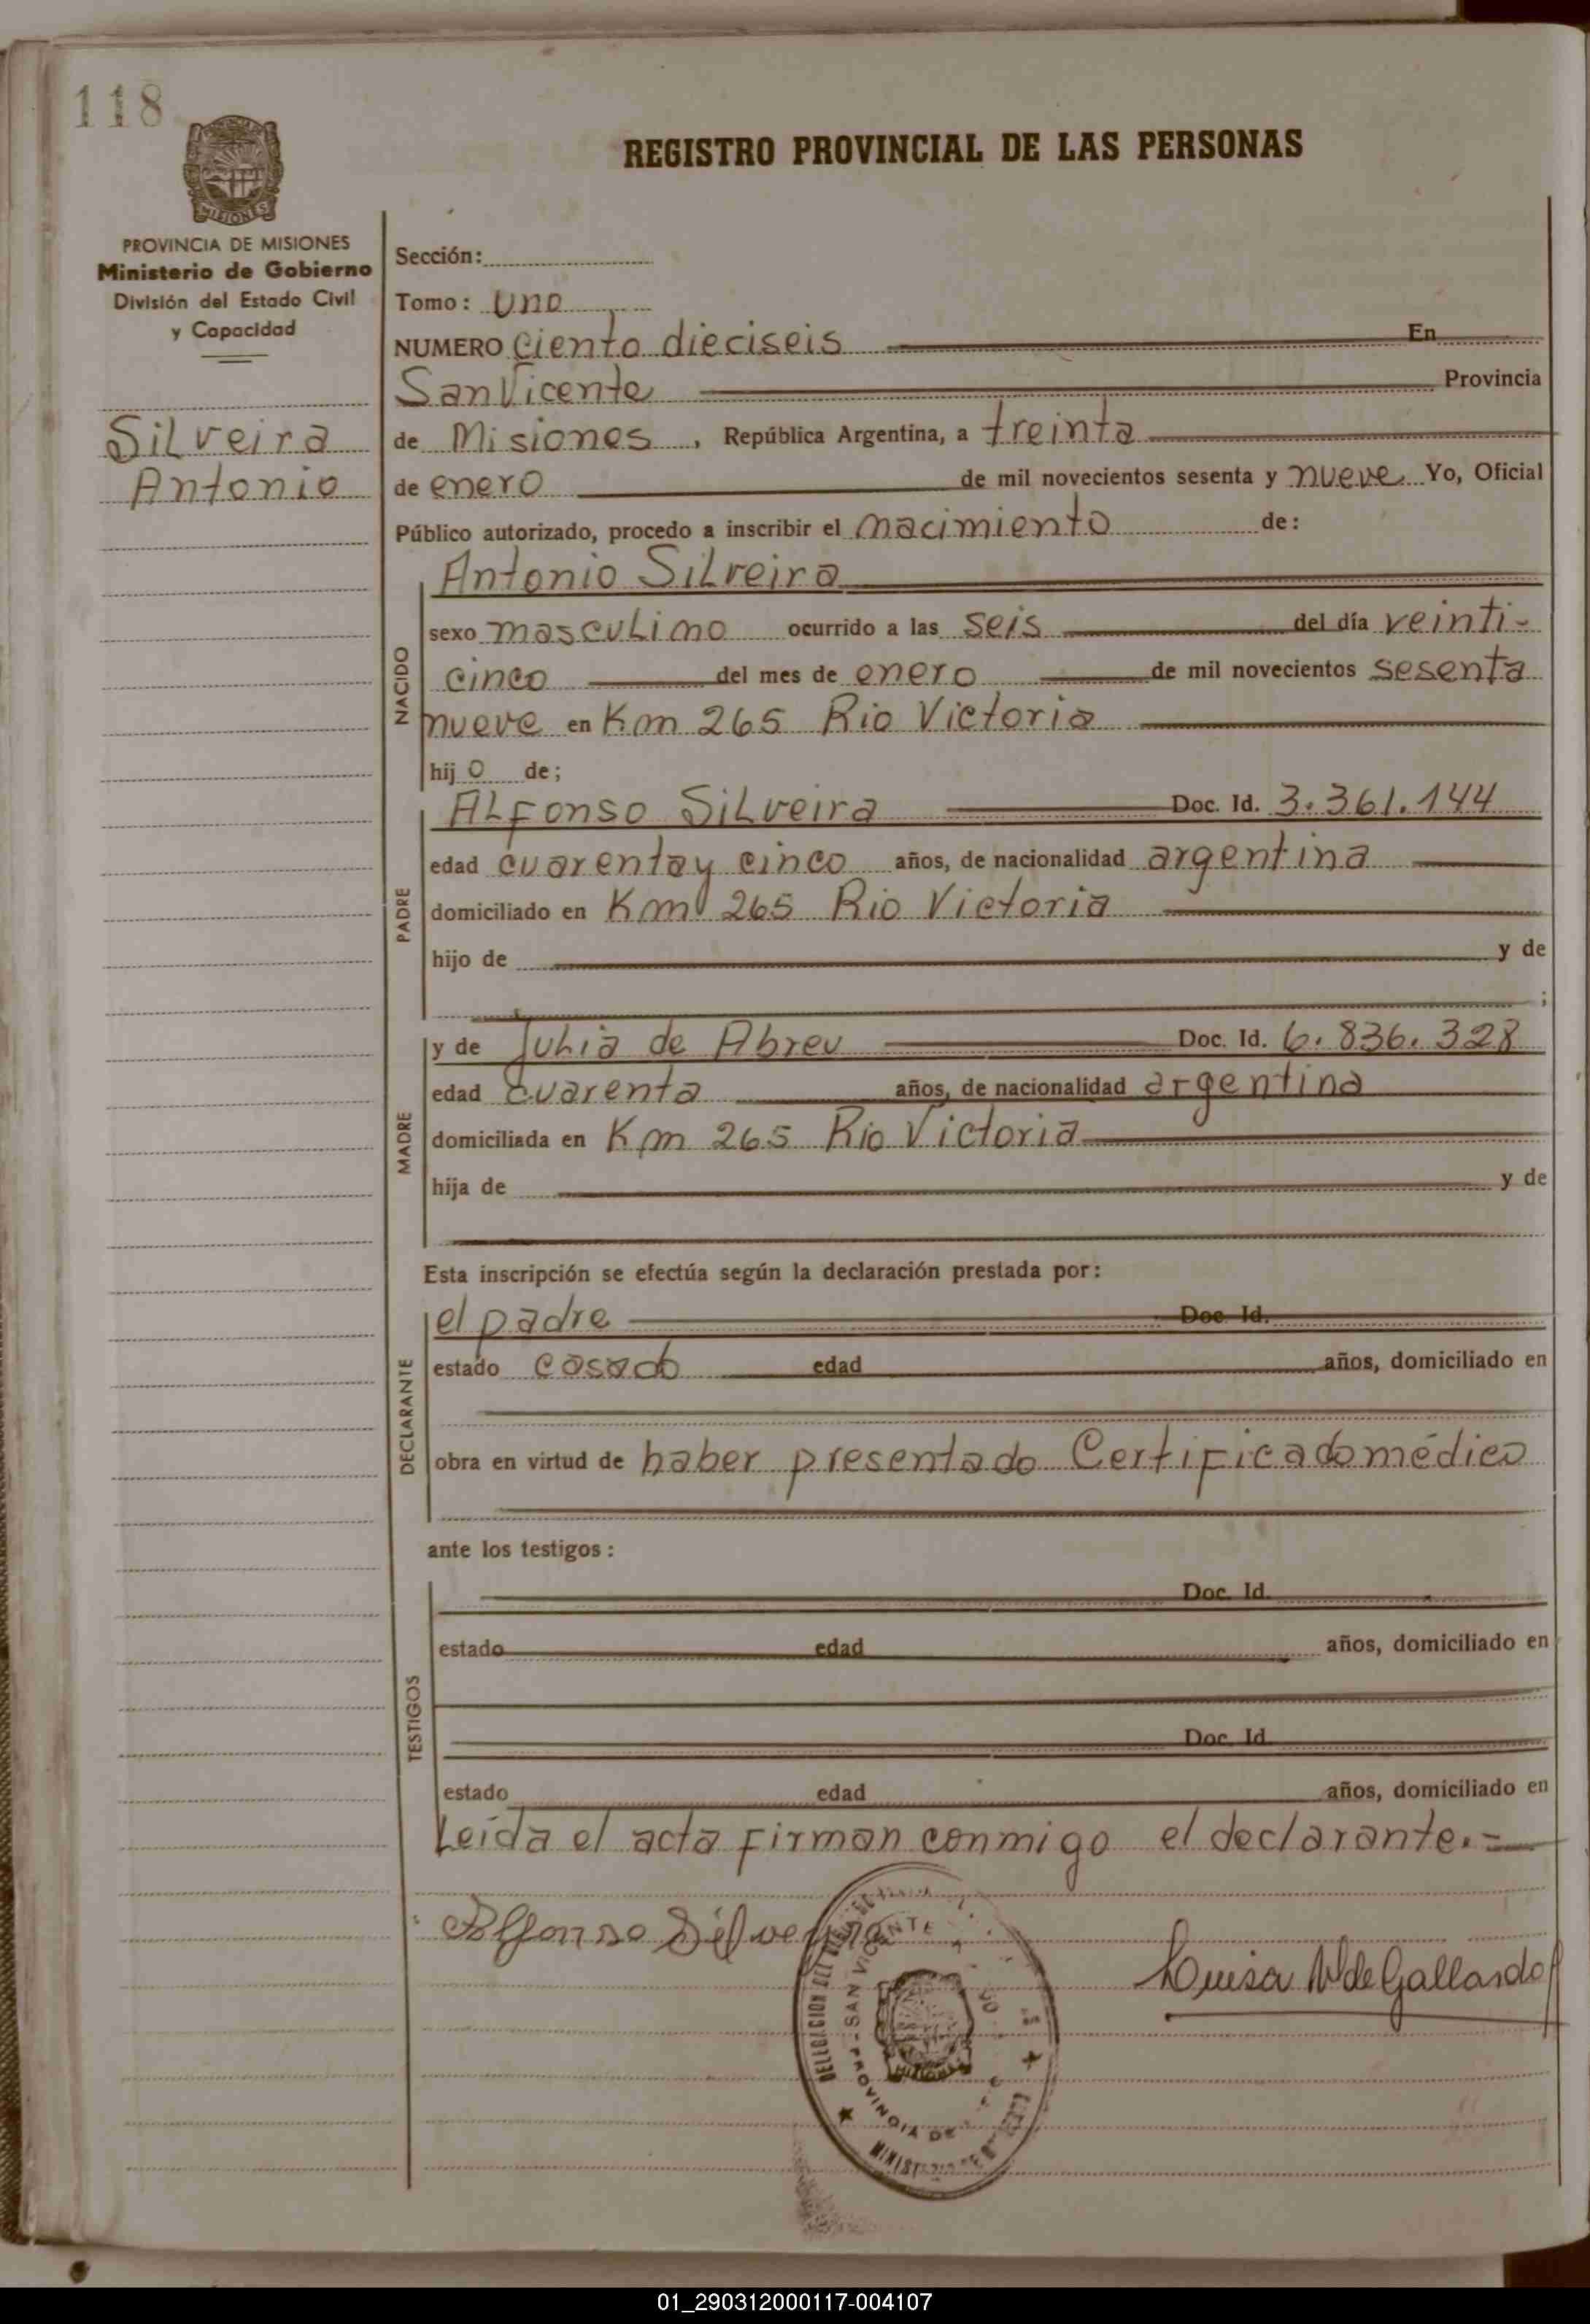 118
REGISTRO PROVINCIAL DE LAS PERSONAS
MISIONES
PROVINCIA DE MISIONES
Ministerio de Gobierno
División del Estado Civil
y Capacidad
Silveira
Antonio
Sección:
Tomo: uno
NUMERO ciento dieciseis En
San Vicente Provincia
de Misiones, República Argentina, a treinta
de enero de mil novecientos sesenta y nueve Yo, Oficial
Público autorizado, procedo a inscribir el nacimiento de:
NACIDO
Antonio Silveira
sexo masculino ocurrido a las seis del día veinti-
cinco del mes de enero de mil novecientos sesenta
nueve en Km 265 Rio Victoria
hijo de;
PADRE
Alfonso Silveira Doc. Id. 3.361.144
edad cuarenta y cinco años, de nacionalidad argentina
domiciliado en Km 265 Rio Victoria
hijo de y de
;
MADRE
y de Julia de Abreu Doc. Id. 6.836.328
edad cuarenta años, de nacionalidad argentina
domiciliada en Km 265 Rio Victoria
hija de y de
Esta inscripción se efectúa según la declaración prestada por:
DECLARANTE
el padre Doc. Id.
estado casado edad años, domiciliado en
obra en virtud de haber presentado Certificado médico
ante los testigos:
TESTIGOS
Doc. Id.
estado edad años, domiciliado en
Doc. Id.
estado edad años, domiciliado en
Leída el acta firman conmigo el declarante.=
Alfonso Silveira
Luisa de Gallardo
DELEGACION DEL
SAN VICENTE
PROVINCIA DE
01_290312000117-004107